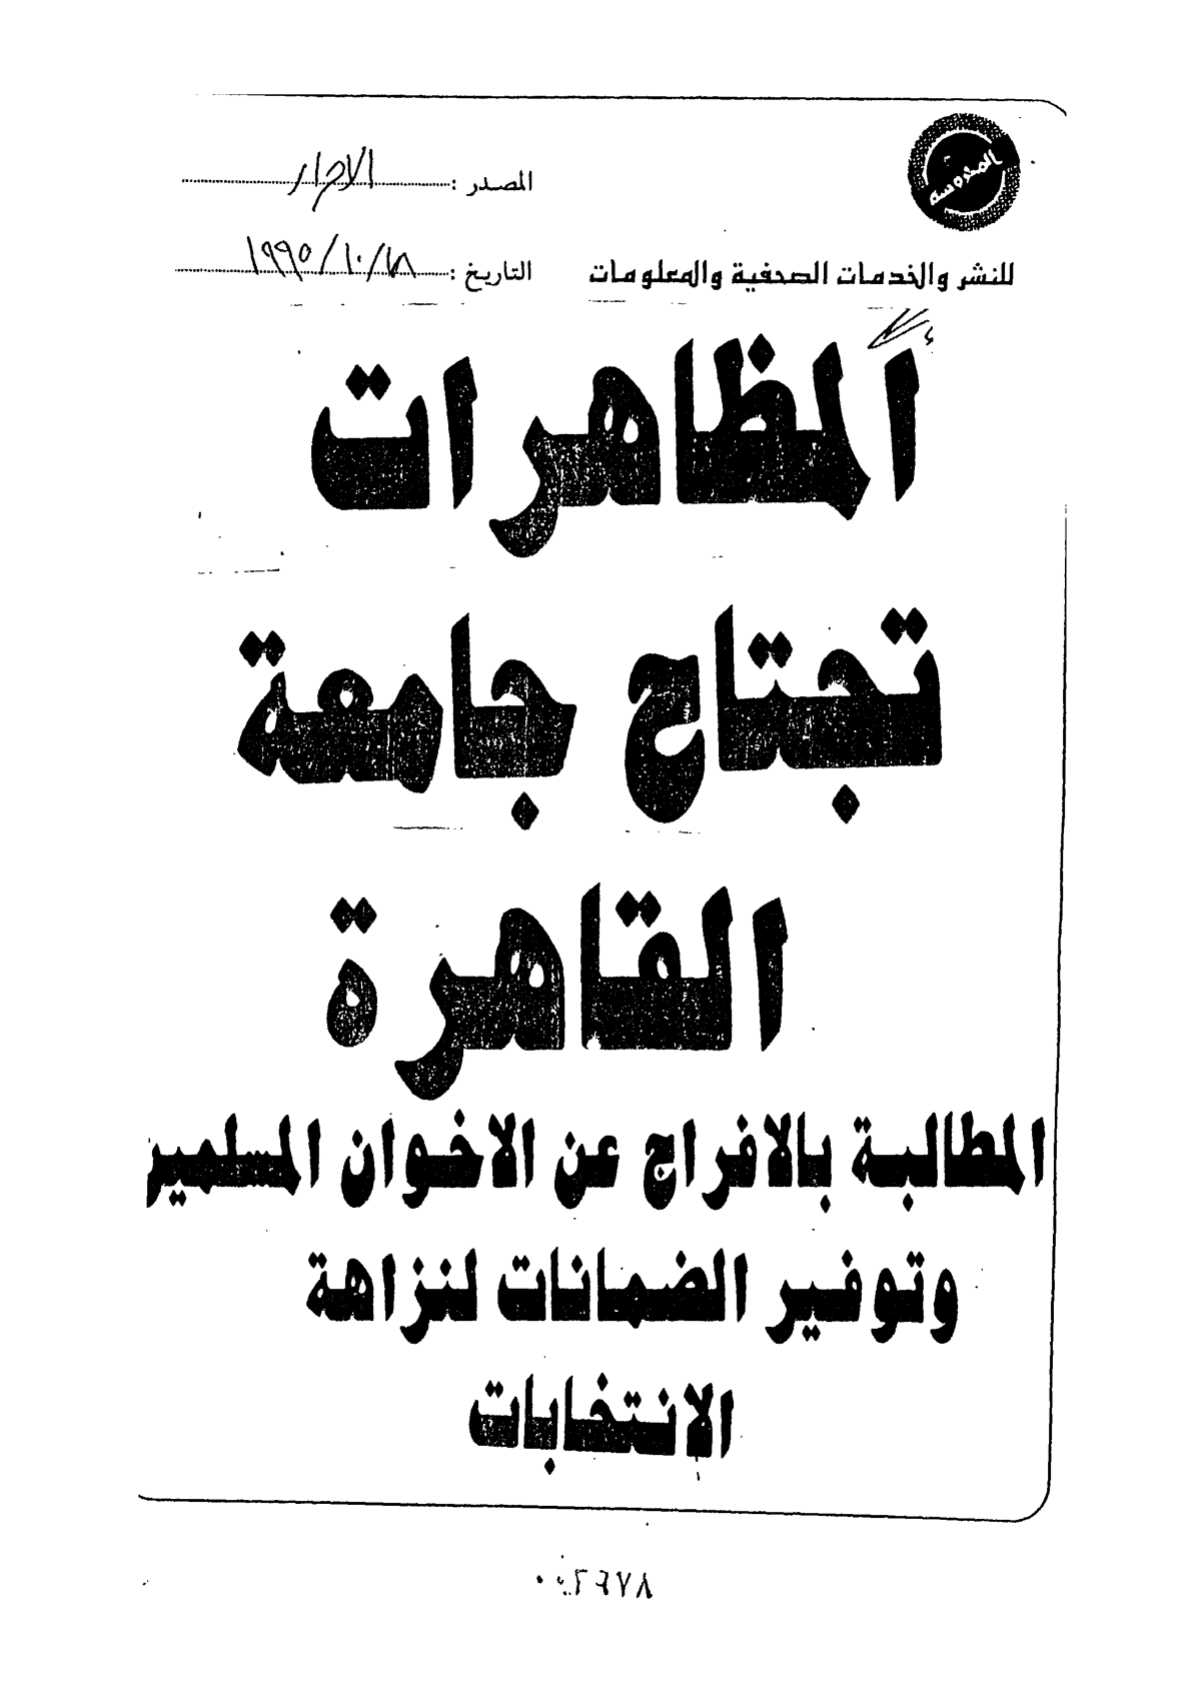 المحروسة
المصدر : الاحرار
للنشر والخدمات الصحفية والمعلومات
التاريخ : ١٩٩٥/١٠/١٨
المظاهرات
تجتاح جامعة
القاهرة
المطالبة بالافراج عن الاخوان المسلمين
وتوفير الضمانات لنزاهة
الانتخابات